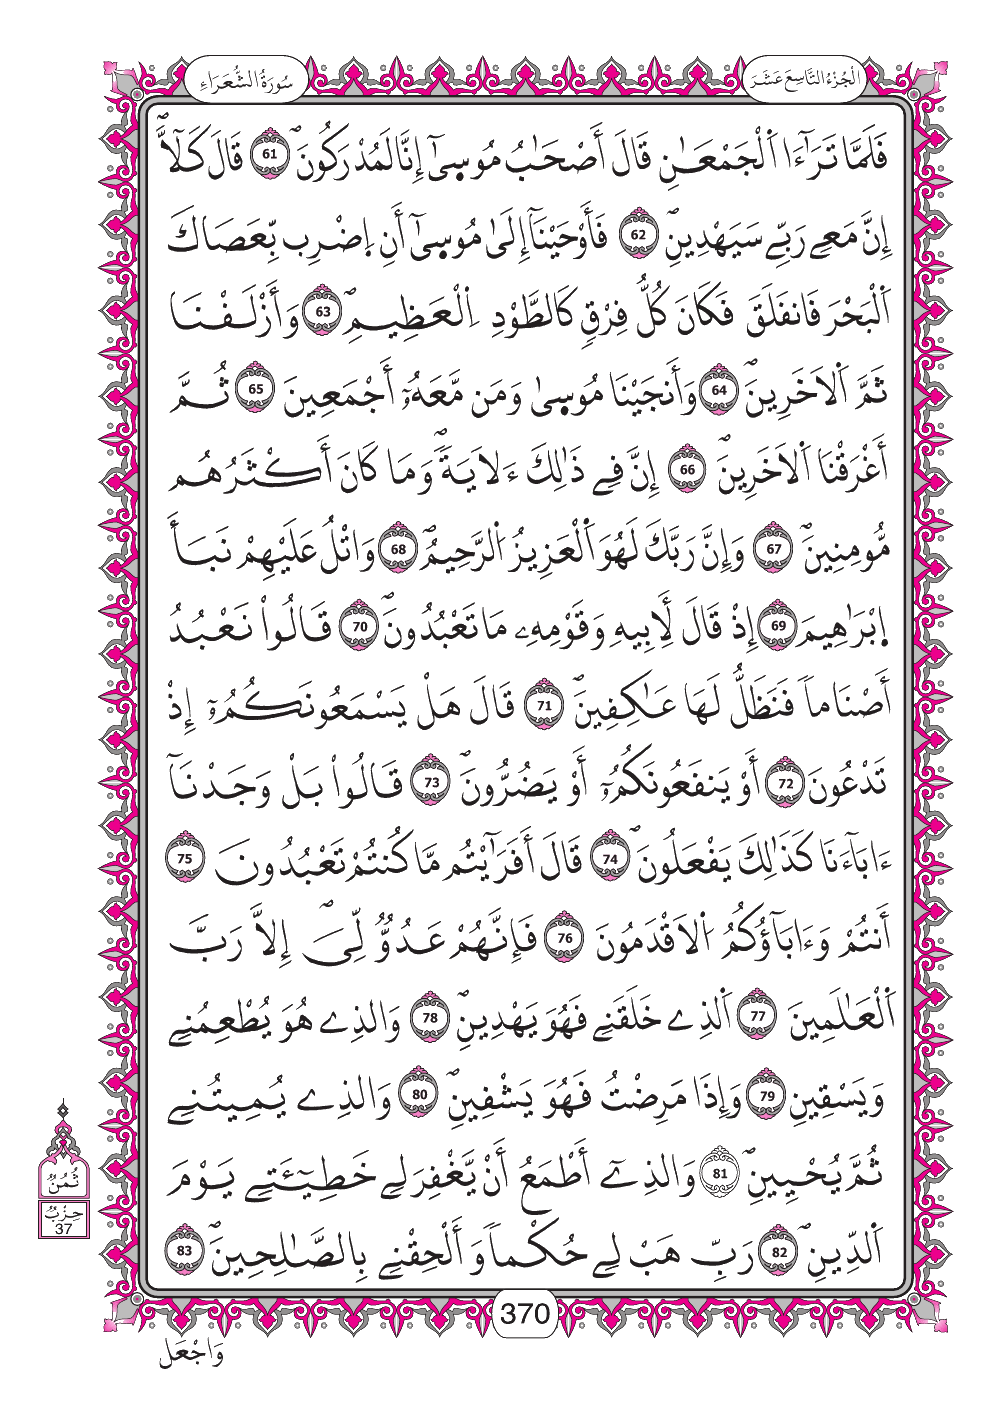 سُورَةُ الشُّعَرَاءِ
اَلْجُزْءُ التَّاسِعَ عَشَرَ
فَلَمَّا تَرَٰٓءَا اَ۬لْجَمْعَٰنِ قَالَ أَصْحَٰبُ مُوس۪يٰٓ إِنَّا لَمُدْرَكُونَۖ 61 قَالَ كَلَّآۖ
إِنَّ مَعِے رَبِّے سَيَهْدِينِۖ 62 فَأَوْحَيْنَآ إِلَىٰ مُوس۪يٰٓ أَنِ اِضْرِب بِّعَصَاكَ
اَ۬لْبَحْرَ فَانفَلَقَ فَكَانَ كُلُّ فِرْقٖ كَالطَّوْدِ اِ۬لْعَظِيمِۖ 63 وَأَزْلَفْنَا
ثَمَّ اَ۬لَاخَرِينَۖ 64 وَأَنجَيْنَا مُوس۪يٰ وَمَن مَّعَهُۥٓ أَجْمَعِينَ 65 ثُمَّ
أَغْرَقْنَا اَ۬لَاخَرِينَۖ 66 إِنَّ فِے ذَٰلِكَ ءَلَايَةٗۖ وَمَا كَانَ أَكْثَرُهُم
مُّومِنِينَۖ 67 وَإِنَّ رَبَّكَ لَهُوَ اَ۬لْعَزِيزُ اُ۬لرَّحِيمُۖ 68 وَاتْلُ عَلَيْهِمْ نَبَأَ
اِبْرَٰهِيمَ 69 إِذْ قَالَ لِأَبِيهِ وَقَوْمِهِۦ مَا تَعْبُدُونَۖ 70 قَالُواْ نَعْبُدُ
أَصْنَاماٗ فَنَظَلُّ لَهَا عَٰكِفِينَۖ 71 قَالَ هَلْ يَسْمَعُونَكُمُۥٓ إِذْ
تَدْعُونَ 72 أَوْ يَنفَعُونَكُمُۥٓ أَوْ يَضُرُّونَۖ 73 قَالُواْ بَلْ وَجَدْنَآ
ءَابَآءَنَا كَذَٰلِكَ يَفْعَلُونَۖ 74 قَالَ أَفَرَٰٓيْتُم مَّا كُنتُمْ تَعْبُدُونَ 75
أَنتُمْ وَءَابَآؤُكُمُ اُ۬لَاقْدَمُونَ 76 فَإِنَّهُمْ عَدُوّٞ لِّيَۖ إِلَّا رَبَّ
اَ۬لْعَٰلَمِينَ 77 اَ۬لذِے خَلَقَنِے فَهُوَ يَهْدِينِۖ 78 وَالذِے هُوَ يُطْعِمُنِے
وَيَسْقِينِ 79 وَإِذَا مَرِضْتُ فَهُوَ يَشْفِينِۖ 80 وَالذِے يُمِيتُنِے
ثُمَّ يُحْيِينِۖ 81 وَالذِےٓ أَطْمَعُ أَنْ يَّغْفِرَ لِے خَطِيٓـَٔتِے يَوْمَ
اَ۬لدِّينِۖ 82 رَبِّ هَبْ لِے حُكْماٗ وَأَلْحِقْنِے بِالصَّٰلِحِينَۖ 83
ثُمُنُ
حِزْبُ
37
370
وَاجْعَل